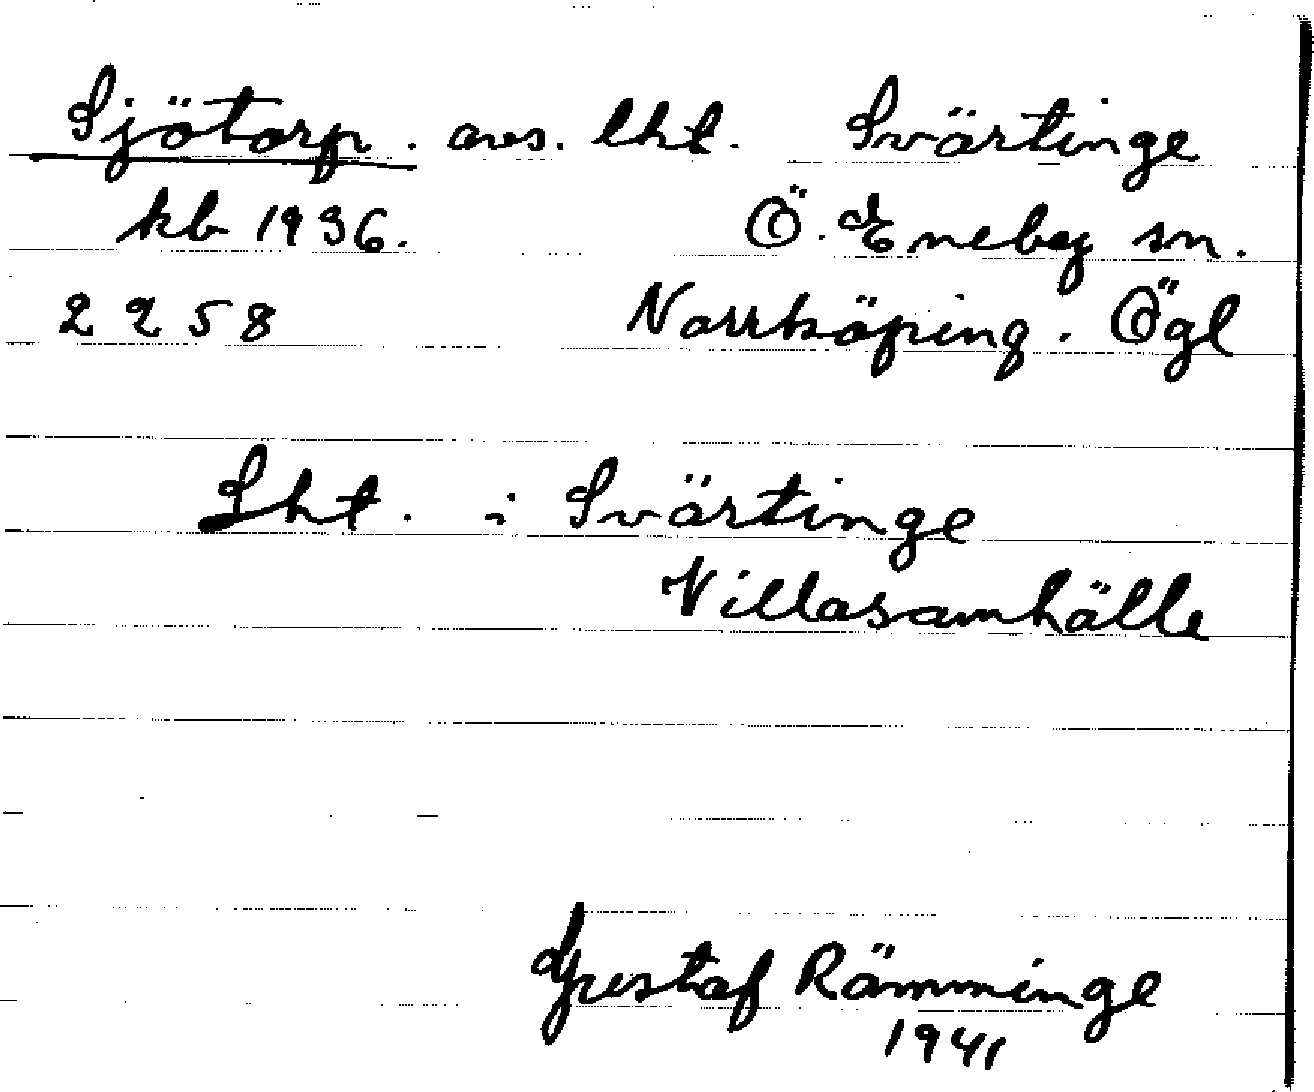 Sjötorp. avs. lht. Svärtinge
kb 1936. Ö. Eneby sn.
2258 Norrköping. Ögl
Lht. i Svärtinge
Villasamhälle
Gustaf Rämminge
1941